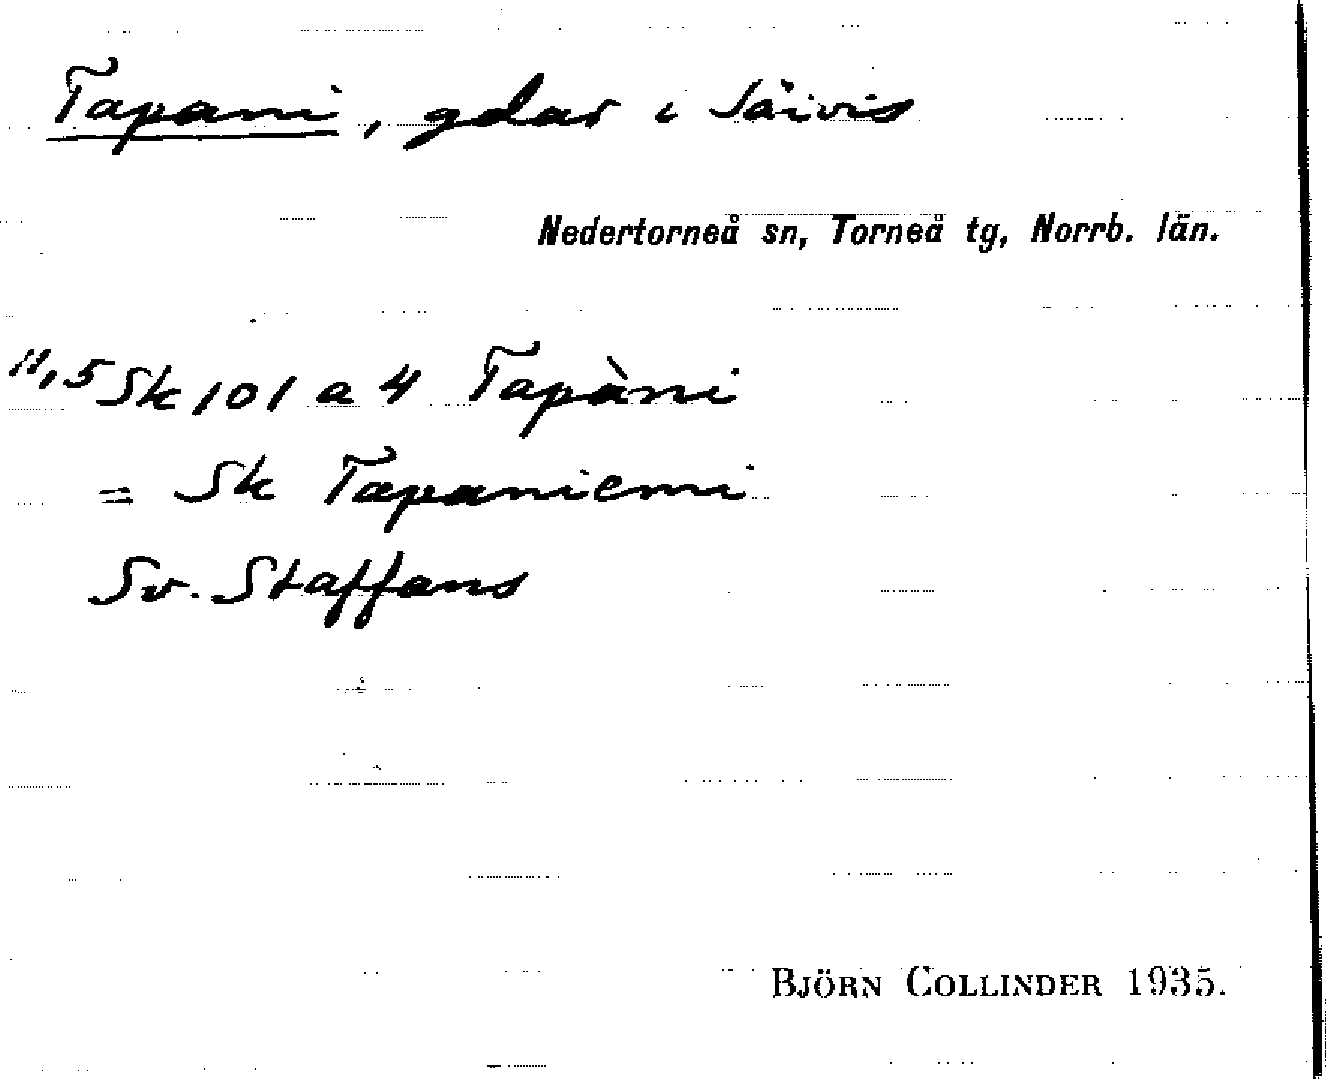 Tapani, gdar i Säivis
Nedertorneå sn, Torneå tg, Norrb. län.
11,5 Sk 101 a 4 Tapàni
= Sk Tapaniemi
Sv. Staffans
BJÖRN COLLINDER 1935.